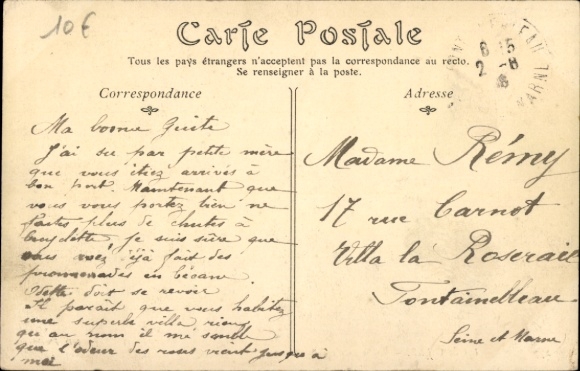 10€
Carte Postale
Tous les pays étrangers n'acceptent pas la correspondance au recto.
Se renseigner à la poste.
Correspondance
Adresse
Ma bonne
J'ai su par petite mère
que vous étiez arrivés à
bon port. Maintenant que
vous vous portez bien ne
faites plus de chutes à
bicyclette, je suis sûre que
vous avez déjà fait des
promenades en bécane.
doit se revoir
Il paraît que vous habitez
une superbe villa rien
qu'au nom il me semble
que l'odeur des roses vient jusqu'à
moi
Madame Rémy
17 rue Carnot
Villa la Roseraie
Fontainebleau
Seine et Marne